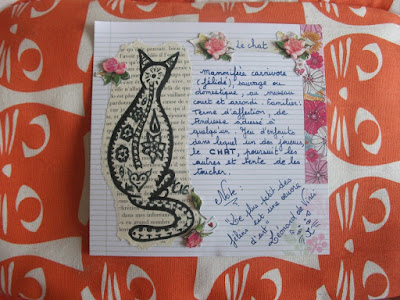 Le chat
Mammifère carnivore
(félidé) sauvage ou
domestique, au museau
court et arrondi. Familier.
Terme d'affection, de
tendresse adressé à
quelqu'un. Jeu d'enfants
dans lequel un des joueurs,
le CHAT, poursuit les
autres et tente de les
toucher.
Note :
"Le plus petit des
félins est une œuvre
d'art"
Léonard de Vinci